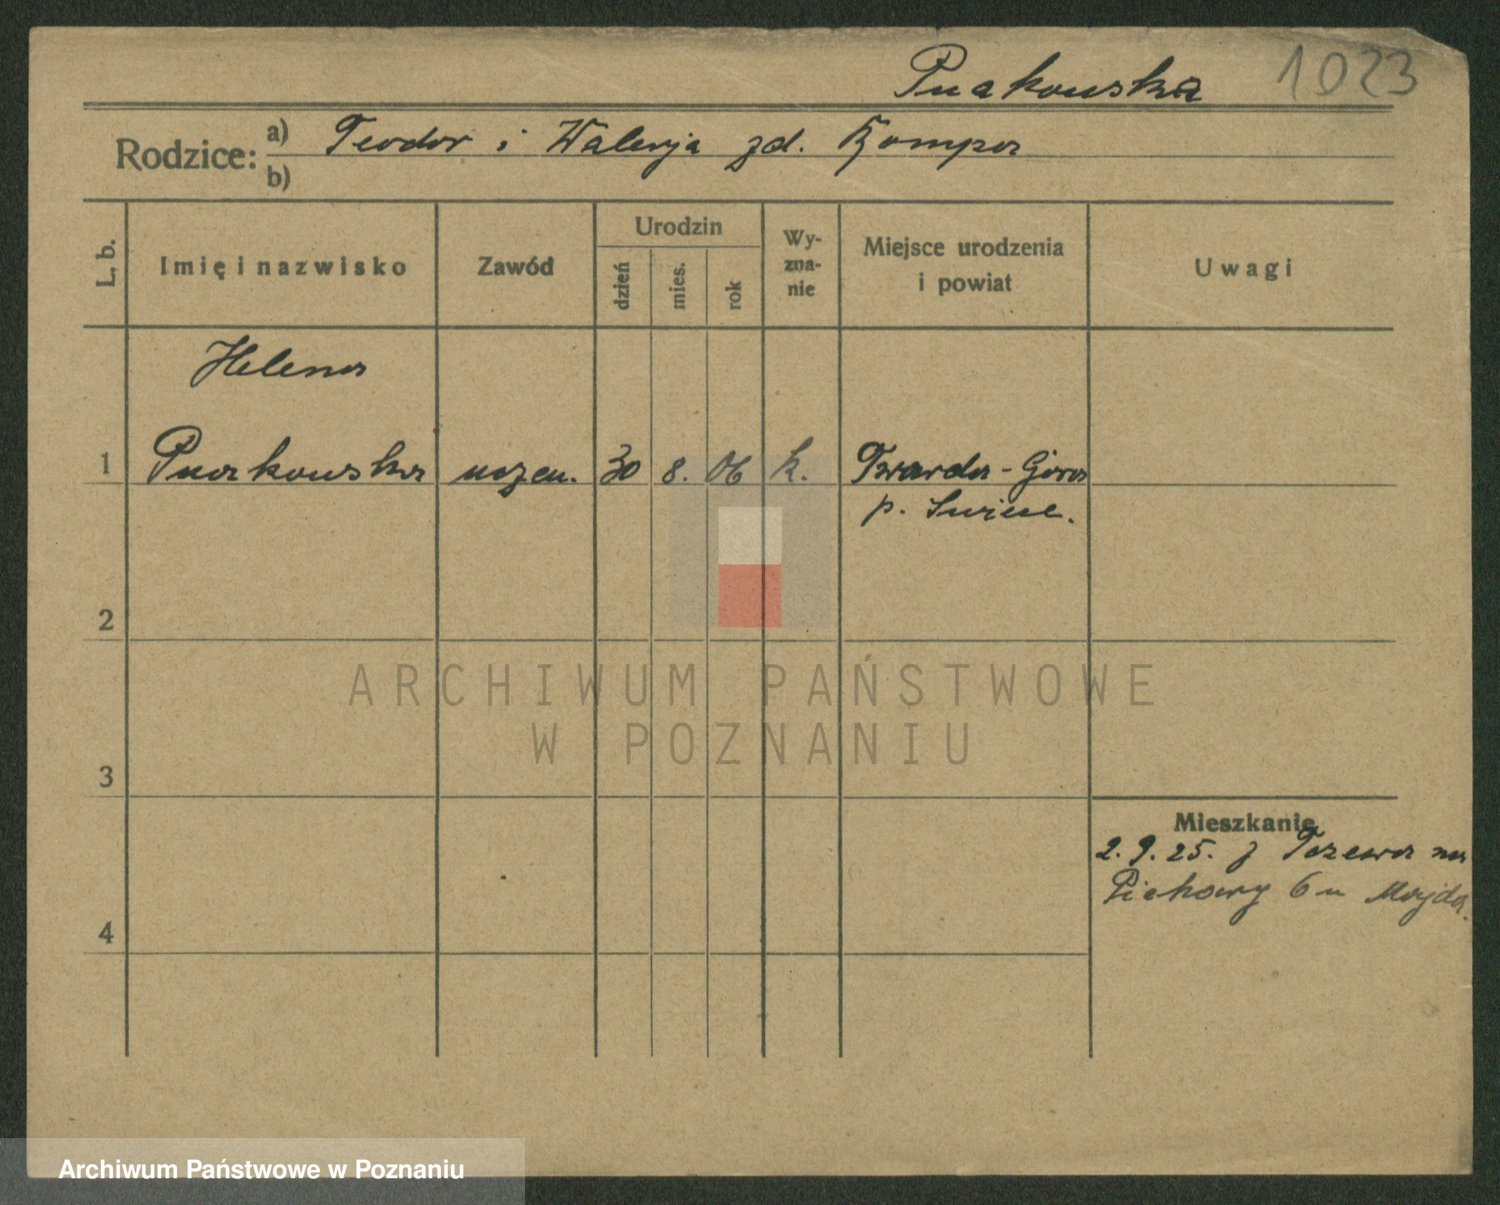 Pnakowska 1023
Rodzice: a) Teodor i Walerja zd. Kompa
b)
L. b. Imię i nazwisko Zawód Urodzin dzień mies. rok Wyznanie Miejsce urodzenia i powiat Uwagi
Helena
1 Pnakowska uczen. 30 8. 06 k. Twarda-Góra
p. Świece.
2
3
4
Mieszkanie
2.9.25. z Tczewa na
Piekary 6 u Majda.
ARCHIWUM PAŃSTWOWE
W POZNANIU
Archiwum Państwowe w Poznaniu